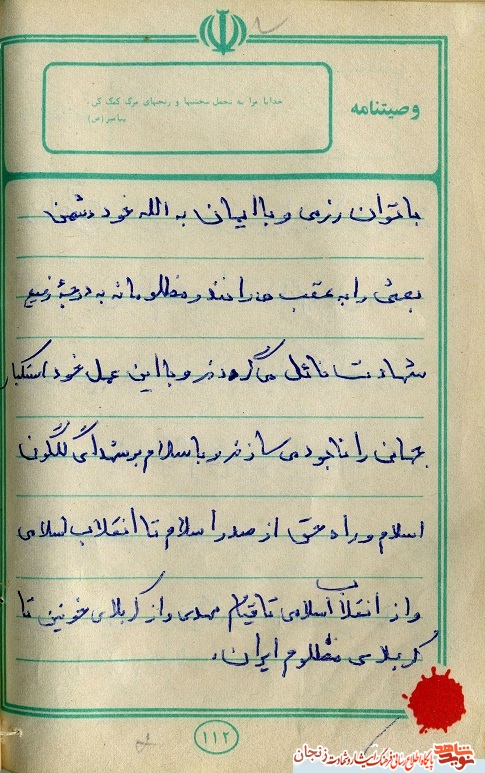 وصیتنامه
خدایا مرا به تحمل سختیها و رنجهای مرگ کمک کن.
پیامبر (ص)
با توان رزمی و با ایمان به الله خود دشمن
بعثی را به عقب میرانند و مظلومانه به درجهٔ رفیع
شهادت نائل می گردند و با این عمل خود استکبار
جهانی را نابود می سازند و با سلام بر شهدای گلگون
اسلام و راه حق از صدر اسلام تا انقلاب اسلامی
و از انقلاب اسلامی تا قیام مهدی و از کربلای خونین تا
کربلای مظلوم ایران.
۱۱۲
نوید شاهد
پایگاه اطلاع رسانی فرهنگ ایثار و شهادت زنجان